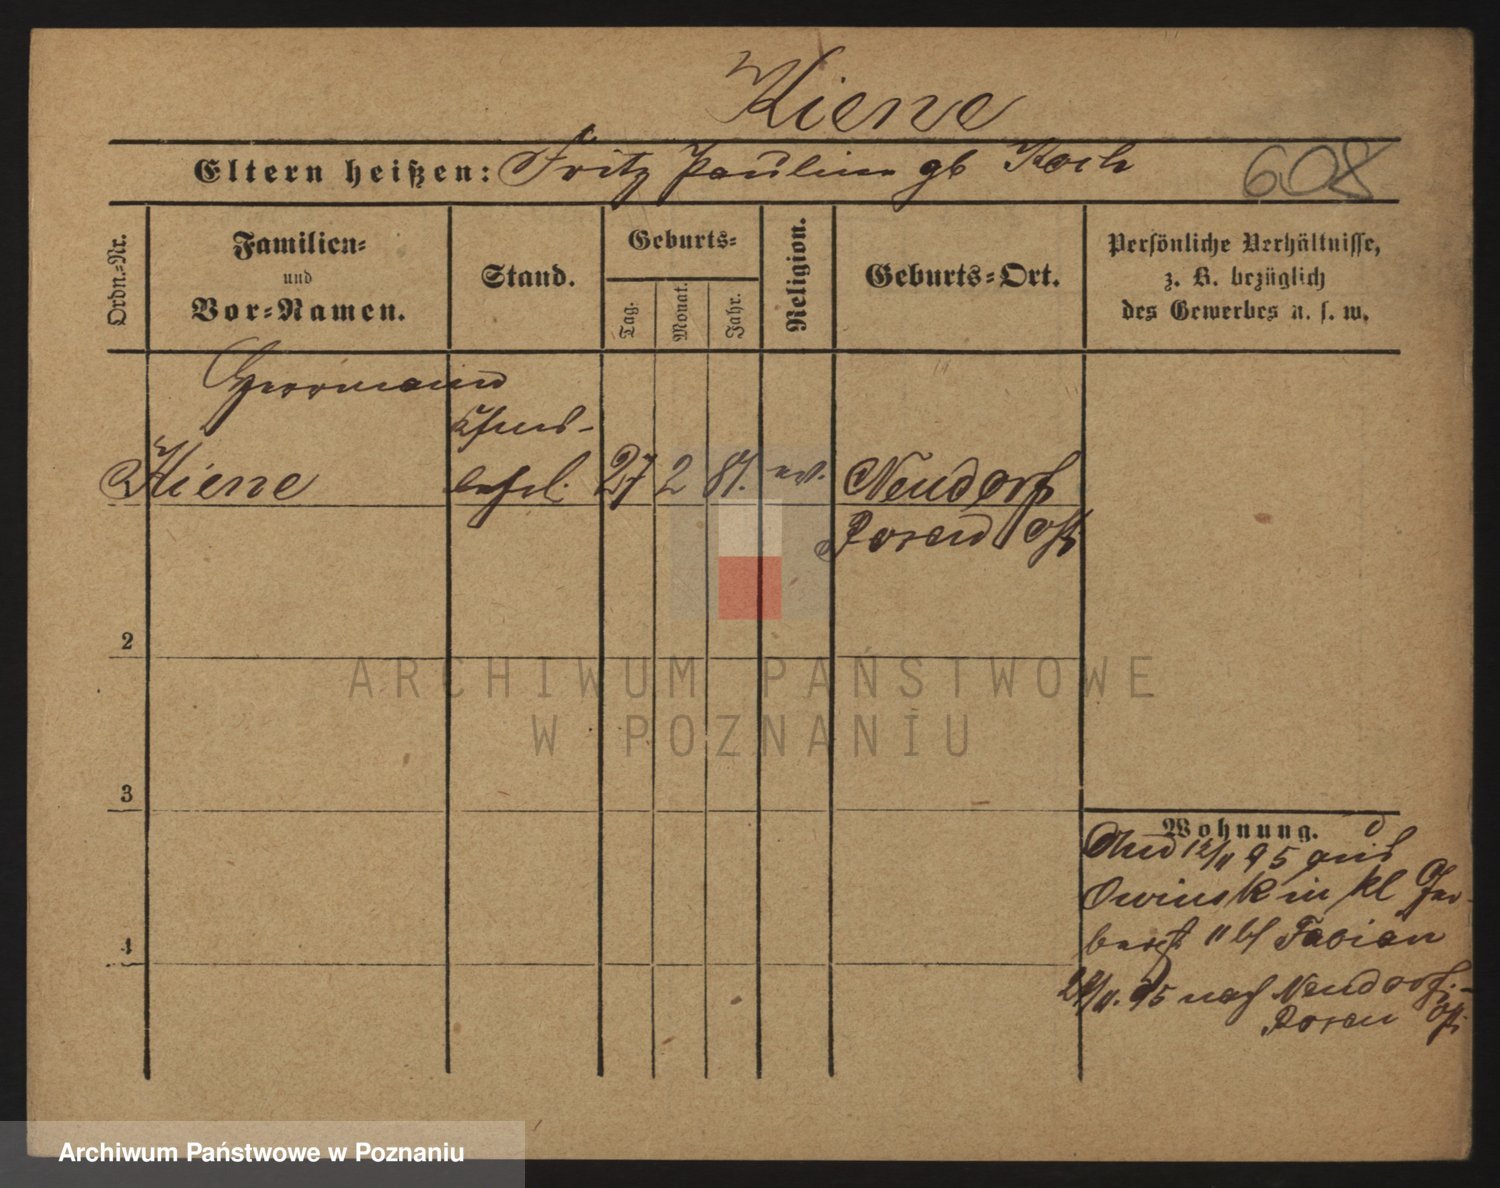 Kiene
Eltern heißen: Fritz Pauline gb Koch
608
Ordn.-Nr.
Familien-
und
Vor-Namen.
Stand.
Geburts-
Tag.
Monat.
Jahr.
Religion.
Geburts-Ort.
Persönliche Verhältnisse,
z. B. bezüglich
des Gewerbes u. s. w.
Herrmann
Kiene
27 2 81. ev. Neudorf
Posen Ost
2
3
4
ARCHIWUM PAŃSTWOWE
W POZNANIU
Wohnung.
12/11 95 aus
Owinsk in kl Ger-
berst 11 bf Fabian
11. 95 nach Neudorf
Posen Ost
Archiwum Państwowe w Poznaniu